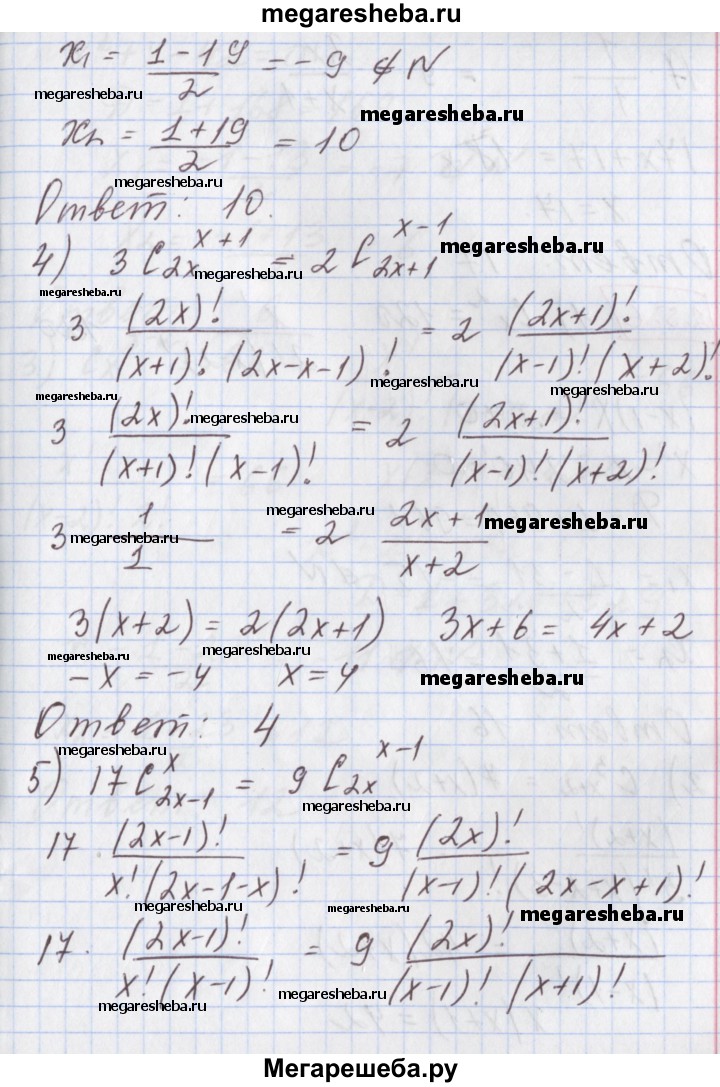 megaresheba.ru
x₁ = (1-19)/2 = -9 ∉ N
megaresheba.ru megaresheba.ru
x₂ = (1+19)/2 = 10
megaresheba.ru
Ответ: 10.
4) 3 C_{2x}^{x+1} = 2 C_{2x+1}^{x-1}
megaresheba.ru megaresheba.ru
megaresheba.ru
3 (2x)!/((x+1)! (2x-x-1)!) = 2 (2x+1)!/((x-1)! (x+2)!)
megaresheba.ru megaresheba.ru
megaresheba.ru
3 (2x)!/((x+1)! (x-1)!) = 2 (2x+1)!/((x-1)! (x+2)!)
megaresheba.ru
megaresheba.ru
3 1/1 = 2 (2x+1)/(x+2)
megaresheba.ru megaresheba.ru megaresheba.ru
3(x+2) = 2(2x+1) 3x+6 = 4x+2
megaresheba.ru megaresheba.ru
-x = -4 x = 4
megaresheba.ru
Ответ: 4
megaresheba.ru megaresheba.ru
5) 17 C_{2x-1}^{x} = 9 C_{2x}^{x-1}
megaresheba.ru
17 · (2x-1)!/(x! (2x-1-x)!) = 9 (2x)!/((x-1)! (2x-x+1)!)
megaresheba.ru megaresheba.ru megaresheba.ru
17 · (2x-1)!/(x! (x-1)!) = 9 (2x)!/((x-1)! (x+1)!)
megaresheba.ru megaresheba.ru megaresheba.ru
Мегарешеба.ру